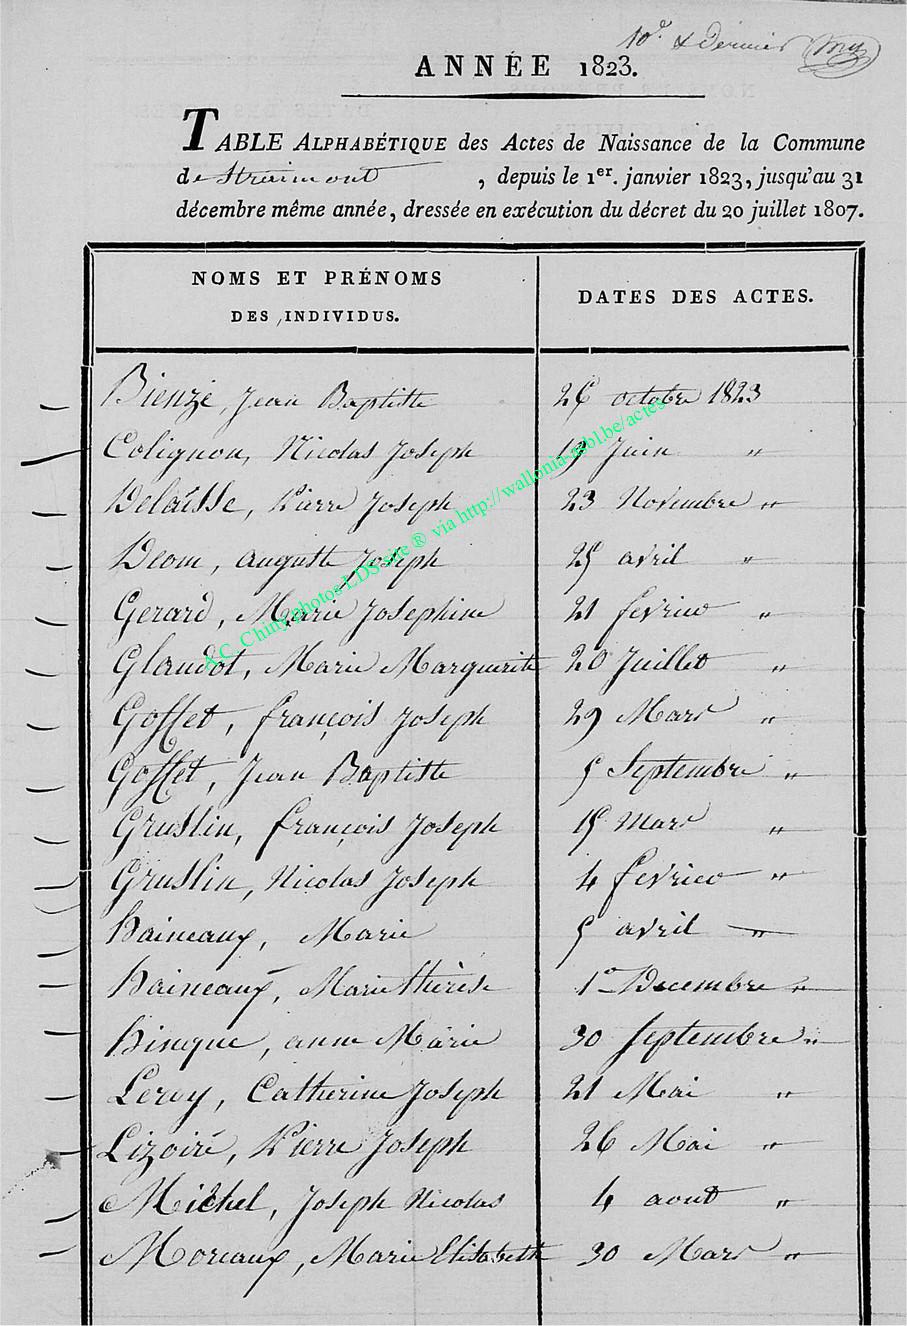 10e & Dernier
ANNÉE 1823.
TABLE ALPHABÉTIQUE des Actes de Naissance de la Commune
de Straimont , depuis le 1er. janvier 1823, jusqu'au 31
décembre même année, dressée en exécution du décret du 20 juillet 1807.
NOMS ET PRÉNOMS DES INDIVIDUS. DATES DES ACTES.
Bienzé, Jean Baptiste 26 octobre 1823
Colignon, Nicolas Joseph 19 Juin "
Delaisse, Pierre Joseph 23 Novembre "
Deom, auguste Joseph 25 avril "
Gerard, Marie Josephine 21 fevrier "
Glaudot, Marie Marguerite 20 Juillet "
Goffet, françois Joseph 29 Mars "
Goffet, Jean Baptiste 5 Septembre "
Gruslin, françois Joseph 15 Mars "
Gruslin, Nicolas Joseph 4 fevrier "
haineaux, Marie 5 avril "
haineaux, Marie thérèse 1er Decembre "
hinque, anne Marie 30 Septembre "
Leroy, Catherine Joseph 21 Mai "
Lizoiré, Pierre Joseph 26 Mai "
Michel, Joseph Nicolas 4 aout "
Moreaux, Marie Elisabeth 30 Mars "
&C. Chiny photos LDS site ® via http://wallonia-asbl.be/actes